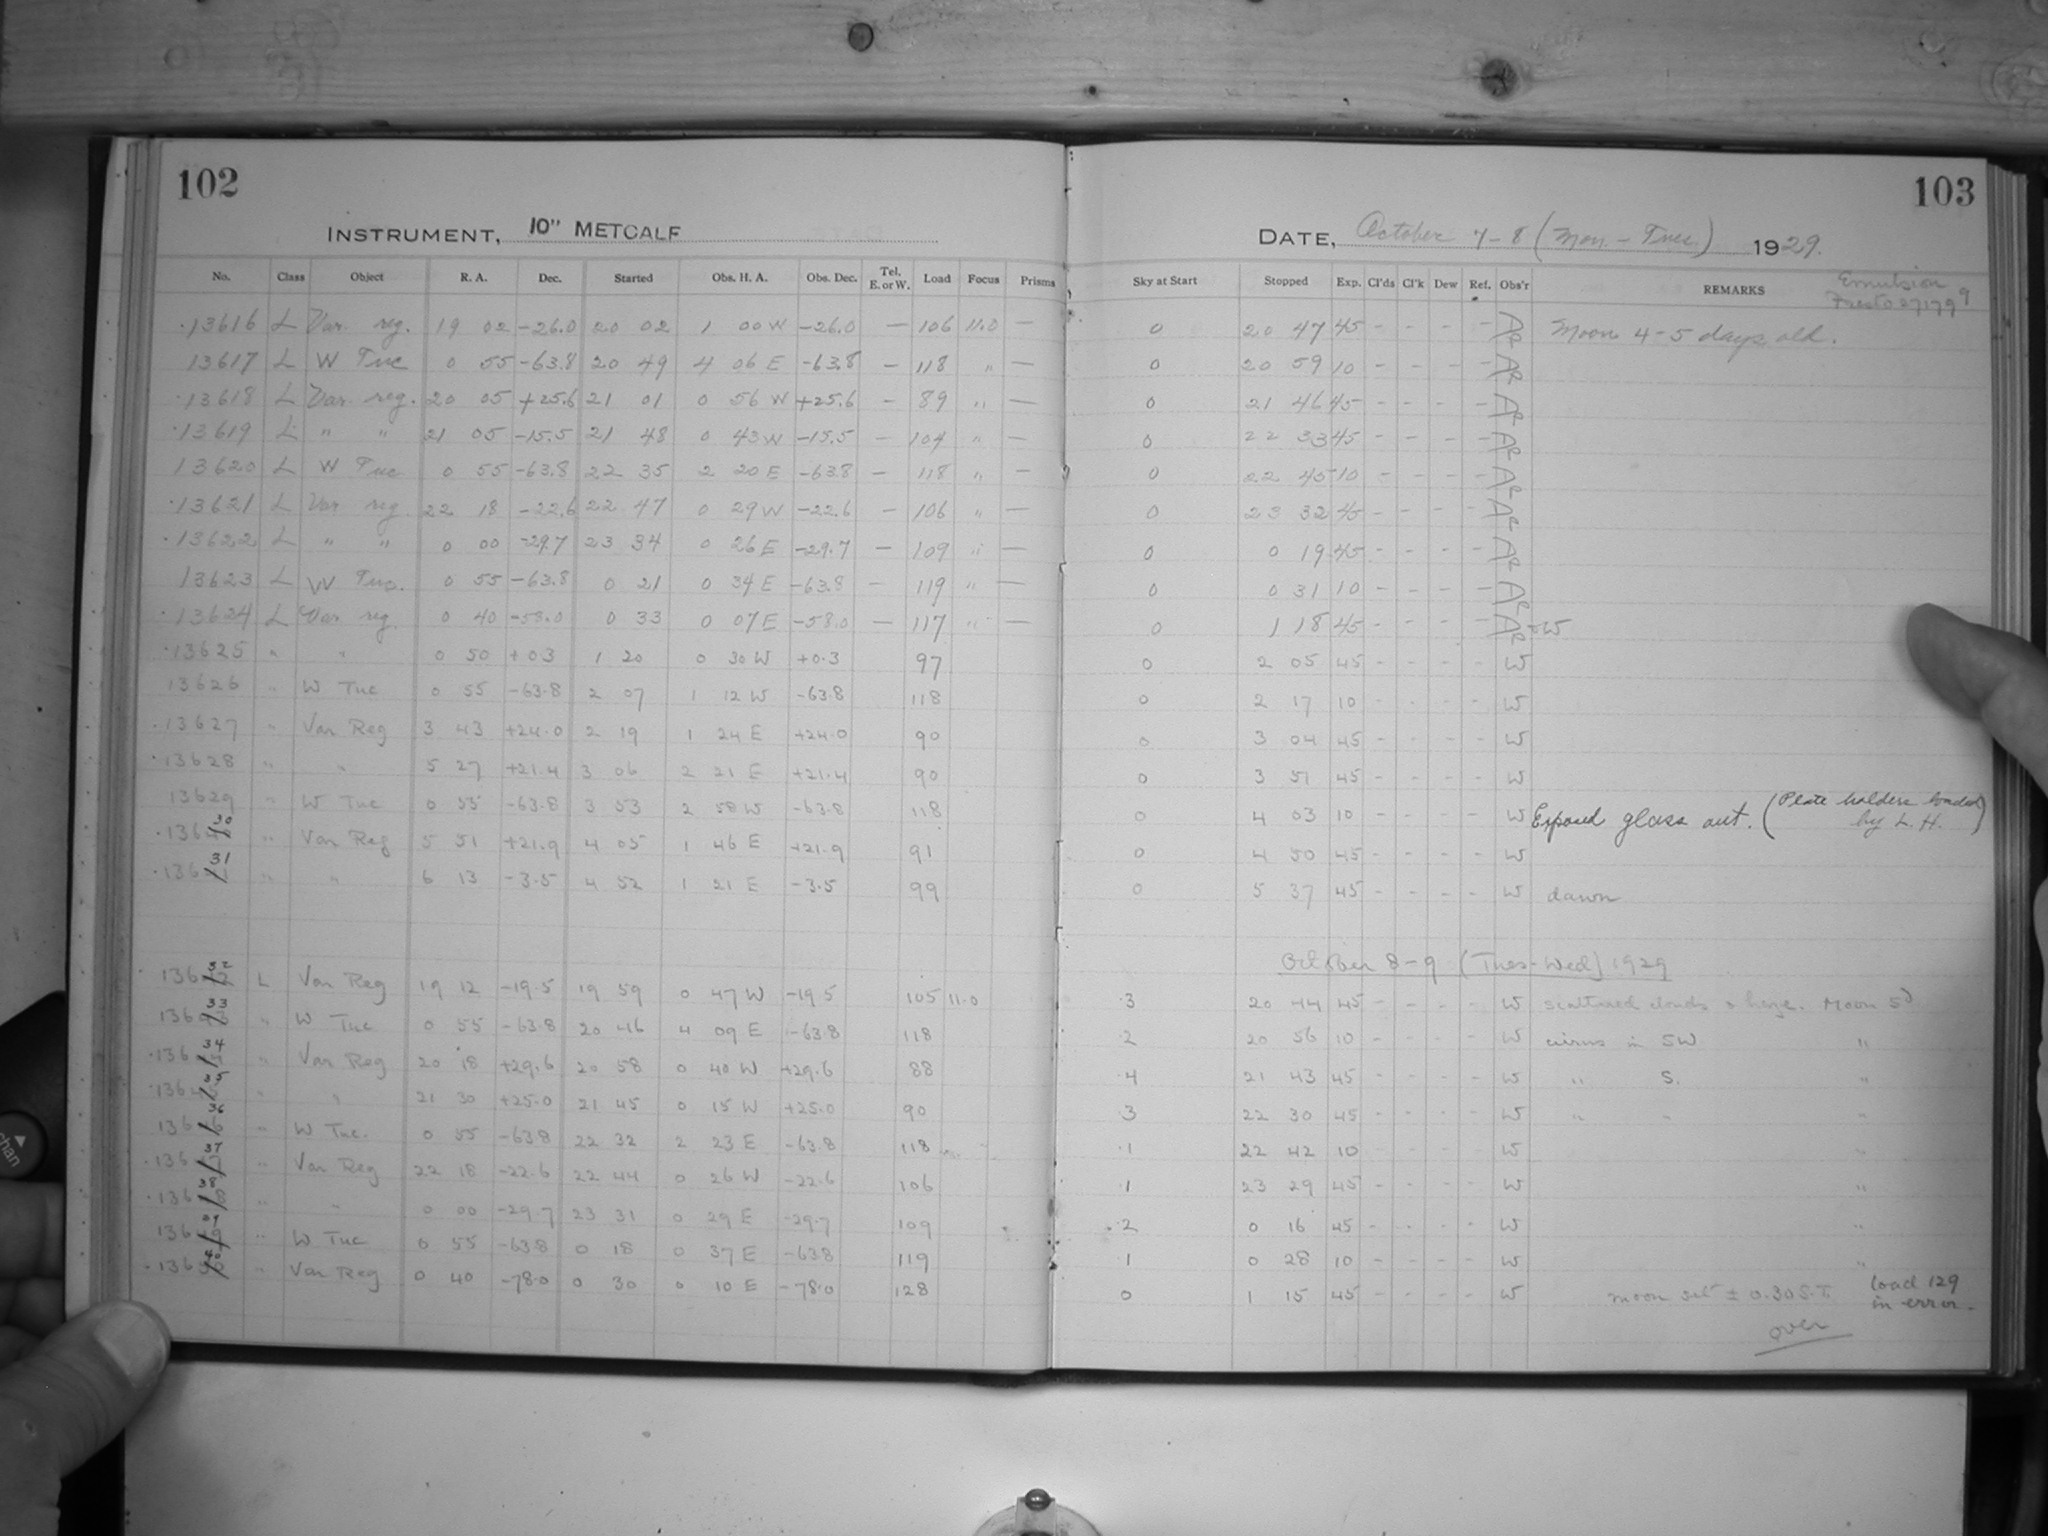 102
103
INSTRUMENT, 10" METCALF
DATE, October 7-8 (Mon. - Tues.) 1929.
No. Class Object R. A. Dec. Started Obs. H. A. Obs. Dec. Tel. E. or W. Load Focus Prisms Sky at Start Stopped Exp. Cl'ds Cl'k Dew Ref. Obs'r REMARKS Emulsion
13616 L Var. reg. 19 02 -26.0 20 02 1 00 W -26.0 — 106 11.0 — 0 20 47 45 - - - - AR Moon 4-5 days old.
13617 L W Tuc 0 55 -63.8 20 49 4 06 E -63.8 — 118 " — 0 20 59 10 - - - - AR
13618 L Var. reg. 20 05 +25.6 21 01 0 56 W +25.6 - 89 " — 0 21 46 45 - - - - AR
13619 L " " 21 05 -15.5 21 48 0 43 W -15.5 - 104 " — 0 22 33 45 - - - - AR
13620 L W Tuc 0 55 -63.8 22 35 2 20 E -63.8 — 118 " — 0 22 45 10 - - - - AR
13621 L Var reg. 22 18 -22.6 22 47 0 29 W -22.6 - 106 " — 0 23 32 45 - - - - AR
13622 L " " 0 00 -29.7 23 34 0 26 E -29.7 — 109 " — 0 0 19 45 - - - - AR
13623 L W Tuc. 0 55 -63.8 0 21 0 34 E -63.8 — 119 " — 0 0 31 10 - - - - AR
13624 L Var reg. 0 40 -58.0 0 33 0 07 E -58.0 — 117 " — 0 1 18 45 - - - - AR-W
13625 " " 0 50 +0.3 1 20 0 30 W +0.3 97 0 2 05 45 - - - - W
13626 " W Tuc 0 55 -63.8 2 07 1 12 W -63.8 118 0 2 17 10 - - - - W
13627 " Var Reg 3 43 +24.0 2 19 1 24 E +24.0 90 0 3 04 45 - - - - W
13628 " " 5 27 +21.4 3 06 2 21 E +21.4 90 0 3 51 45 - - - - W
13629 " W Tuc 0 55 -63.8 3 53 2 58 W -63.8 118 0 4 03 10 - - - - W Exposed glass out. (Plate holders loaded by L. H.)
13630 " Var Reg 5 51 +21.9 4 05 1 46 E +21.9 91 0 4 50 45 - - - - W
13631 " " 6 13 -3.5 4 52 1 21 E -3.5 99 0 5 37 45 - - - - W dawn
October 8-9 (Tues-Wed) 1929
13632 L Var Reg 19 12 -19.5 19 59 0 47 W -19.5 105 11.0 .3 20 44 45 - - - - W scattered clouds & haze. Moon 5d
13633 " W Tuc 0 55 -63.8 20 46 4 09 E -63.8 118 .2 20 56 10 - - - - W cirrus in SW "
13634 " Var Reg 20 18 +29.6 20 58 0 40 W +29.6 88 .4 21 43 45 - - - - W " S. "
13635 " " 21 30 +25.0 21 45 0 15 W +25.0 90 .3 22 30 45 - - - - W " " "
13636 " W Tuc. 0 55 -63.8 22 32 2 23 E -63.8 118 .1 22 42 10 - - - - W "
13637 " Var Reg 22 18 -22.6 22 44 0 26 W -22.6 106 .1 23 29 45 - - - - W "
13638 " " 0 00 -29.7 23 31 0 29 E -29.7 109 .2 0 16 45 - - - - W "
13639 " W Tuc 0 55 -63.8 0 18 0 37 E -63.8 119 .1 0 28 10 - - - - W "
13640 " Var Reg 0 40 -78.0 0 30 0 10 E -78.0 128 0 1 15 45 - - - - W moon set ± 0.30 S.T. load 129 in error.
over